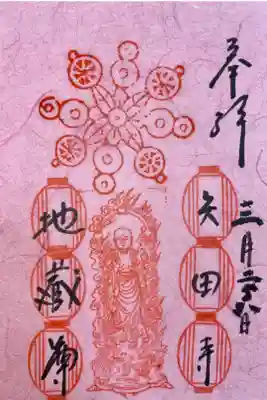 奉拝
三月二六日
矢田寺
地蔵尊